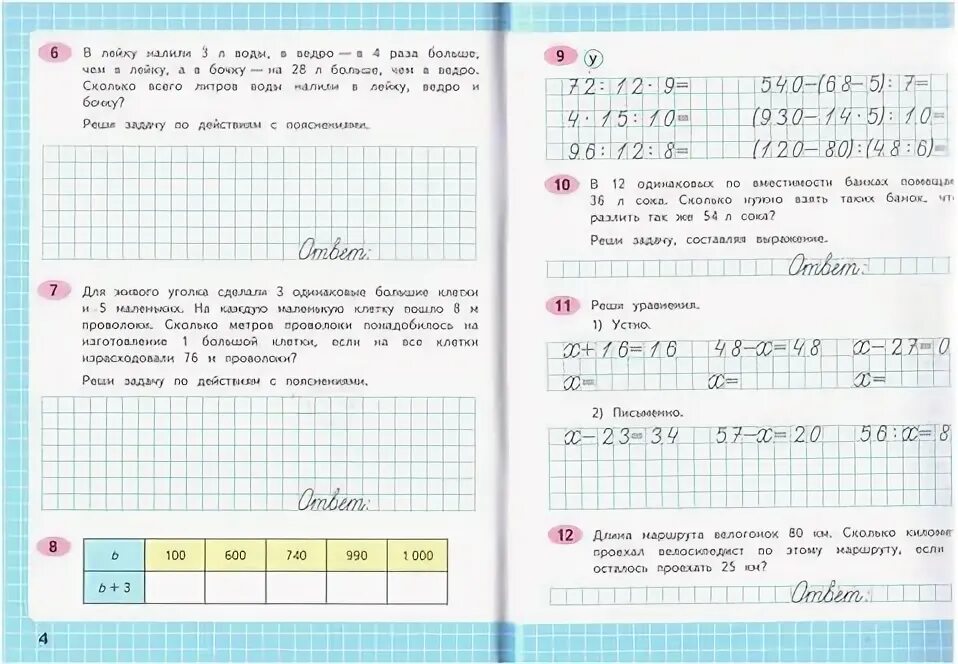 6 В лейку налили 3 л воды, в ведро — в 4 раза больше,
чем в лейку, а в бочку — на 28 л больше, чем в ведро.
Сколько всего литров воды налили в лейку, ведро и
бочку?
Реши задачу по действиям с пояснениями.
Ответ:
7 Для живого уголка сделали 3 одинаковые большие клетки
и 5 маленьких. На каждую маленькую клетку пошло 8 м
проволоки. Сколько метров проволоки понадобилось на
изготовление 1 большой клетки, если на все клетки
израсходовали 76 м проволоки?
Реши задачу по действиям с пояснениями.
Ответ:
8 b 100 600 740 990 1 000
b + 3
4
9 у
72:12·9= 540-(68-5):7=
4·15:10= (930-14·5):10=
96:12:8= (120-80):(48:6)=
10 В 12 одинаковых по вместимости банках помещаи
36 л сока. Сколько нужно взять таких банок, чт
разлить так же 54 л сока?
Реши задачу, составляя выражение.
Ответ:
11 Реши уравнения.
1) Устно.
x+16=16 48-x=48 x-27=0
x= x= x=
2) Письменно.
x-23=34 57-x=20 56:x=8
12 Длина маршрута велогонок 80 км. Сколько киломе
проехал велосипедист по этому маршруту, если
осталось проехать 25 км?
Ответ: